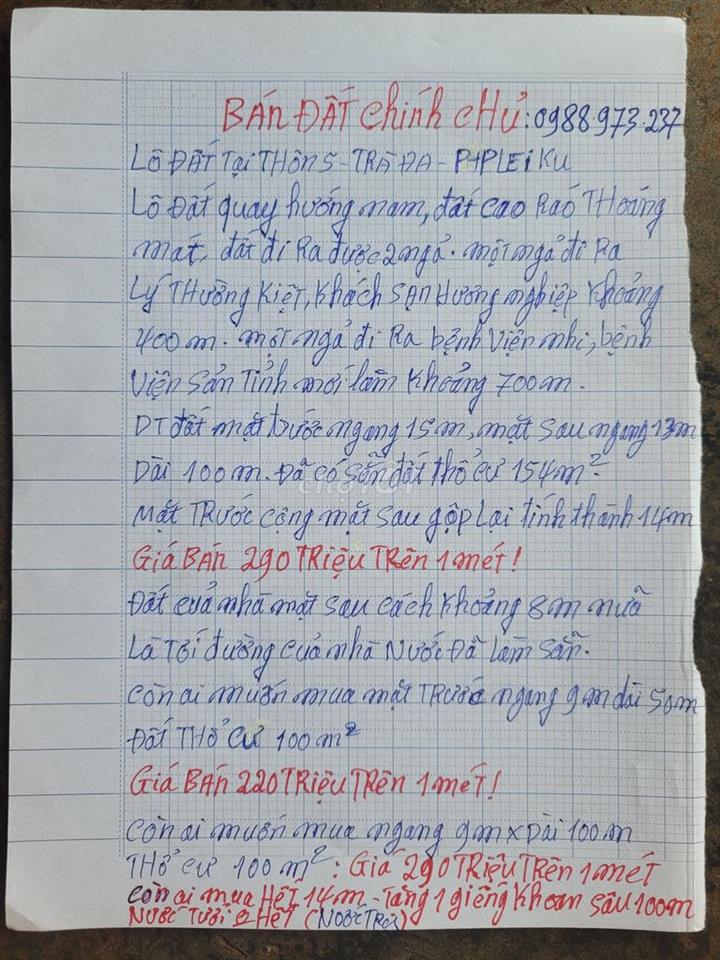 BÁN ĐẤT chính chủ: 0988.973.237
LÔ ĐẤT TẠI THÔN 5 - TRÀ ĐA - P+PLEIKU
LÔ ĐẤT quay hướng nam, đất cao Ráo THoáng
mát, đất đi Ra được 2 ngả. một ngả đi Ra
Lý THường Kiệt, Khách Sạn Hương nghiệp Khoảng
400m. một ngả đi Ra bệnh Viện nhi, bệnh
Viện Sản Tỉnh mới làm Khoảng 700m.
DT đất mặt trước ngang 15m, mặt sau ngang 13m
Dài 100m. Đã có sẵn đất thổ cư 154m².
Mặt TRước cộng mặt sau gộp lại tính thành 14m
Giá BÁN 290 TRiệu TRên 1 mét!
Đất của nhà mặt sau cách Khoảng 8m nữa
Là Tới đường của nhà NƯớc ĐÃ Làm Sẵn.
Còn ai muốn mua mặt TRước ngang 9m dài 50m
ĐẤT THổ Cư 100m²
Giá BÁN 220 TRiệu TRên 1 mét!
Còn ai muốn mua ngang 9m x Dài 100m
THổ cư 100m²: Giá 290 TRIệu TRên 1 mét
Còn ai mua Hết 14m - Tặng 1 giếng Khoan Sâu 100m
NƯớc Tưới Hết